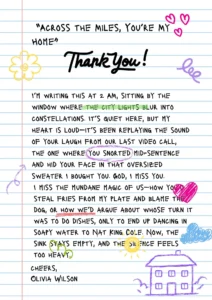 "ACROSS THE MILES, YOU'RE MY
HOME"
Thank You!
I'M WRITING THIS AT 2 AM, SITTING BY THE
WINDOW WHERE THE CITY LIGHTS BLUR INTO
CONSTELLATIONS. IT'S QUIET HERE, BUT MY
HEART IS LOUD—IT'S BEEN REPLAYING THE SOUND
OF YOUR LAUGH FROM OUR LAST VIDEO CALL,
THE ONE WHERE YOU SNORTED MID-SENTENCE
AND HID YOUR FACE IN THAT OVERSIZED
SWEATER I BOUGHT YOU. GOD, I MISS YOU.
I MISS THE MUNDANE MAGIC OF US—HOW YOU'D
STEAL FRIES FROM MY PLATE AND BLAME THE
DOG, OR HOW WE'D ARGUE ABOUT WHOSE TURN IT
WAS TO DO DISHES, ONLY TO END UP DANCING IN
SOAPY WATER TO NAT KING COLE. NOW, THE
SINK STAYS EMPTY, AND THE SILENCE FEELS
TOO HEAVY.
CHEERS,
OLIVIA WILSON